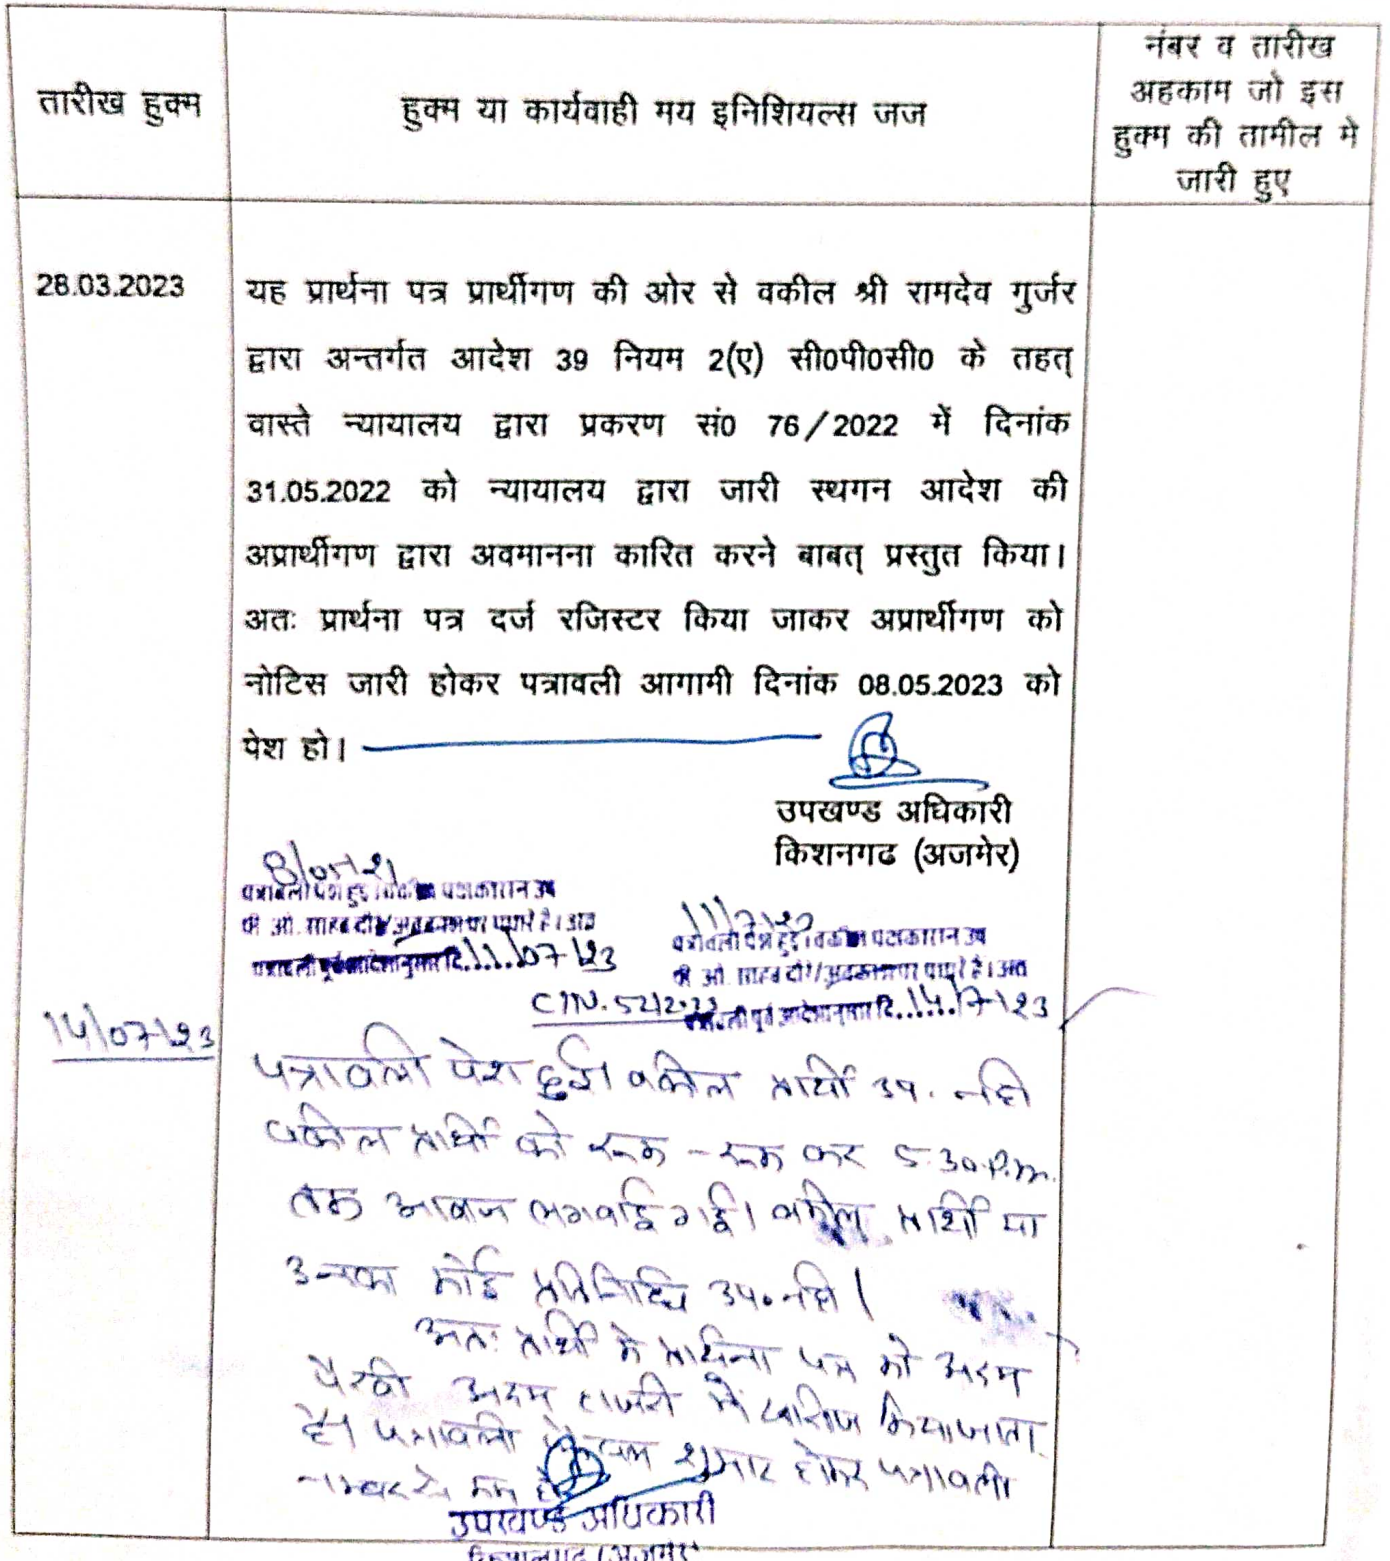 तारीख हुक्म
हुक्म या कार्यवाही मय इनिशियल्स जज
नंबर व तारीख
अहकाम जो इस
हुक्म की तामील मे
जारी हुए
28.03.2023
यह प्रार्थना पत्र प्रार्थीगण की ओर से वकील श्री रामदेव गुर्जर
द्वारा अन्तर्गत आदेश 39 नियम 2(ए) सी0पी0सी0 के तहत्
वास्ते न्यायालय द्वारा प्रकरण सं0 76/2022 में दिनांक
31.05.2022 को न्यायालय द्वारा जारी स्थगन आदेश की
अप्रार्थीगण द्वारा अवमानना कारित करने बाबत् प्रस्तुत किया।
अतः प्रार्थना पत्र दर्ज रजिस्टर किया जाकर अप्रार्थीगण को
नोटिस जारी होकर पत्रावली आगामी दिनांक 08.05.2023 को
पेश हो।
उपखण्ड अधिकारी
किशनगढ (अजमेर)
पत्रावली पेश हुई। वकील पक्षकारान उप
पी ओ. साहब दौरे/अवकाश पर पधारे है। अत
पत्रावली पूर्व आदेशानुसार दि. 11/07/23
11/7/23
पत्रावली पेश हुई। वकील पक्षकारान उप
पी ओ. साहब दौरे/अवकाश पर पधारे है। अत
पत्रावली पूर्व आदेशानुसार दि. 14/7/23
14/07/23
पत्रावली पेश हुई। वकील प्रार्थी उप. नही
वकील प्रार्थी को रूक - रूक कर 5.30 P.m.
तक आवाज लगवाई गई। वकील प्रार्थी या
उनका कोई प्रतिनिधि उप. नही।
अतः प्रार्थी के प्रार्थना पत्र को अदम
पैरवी अदम हाजरी में खारिज किया जाता
है। पत्रावली शुमार होकर पत्रावली
नम्बर से कम हो
उपखण्ड अधिकारी
किशनगढ (अजमेर)